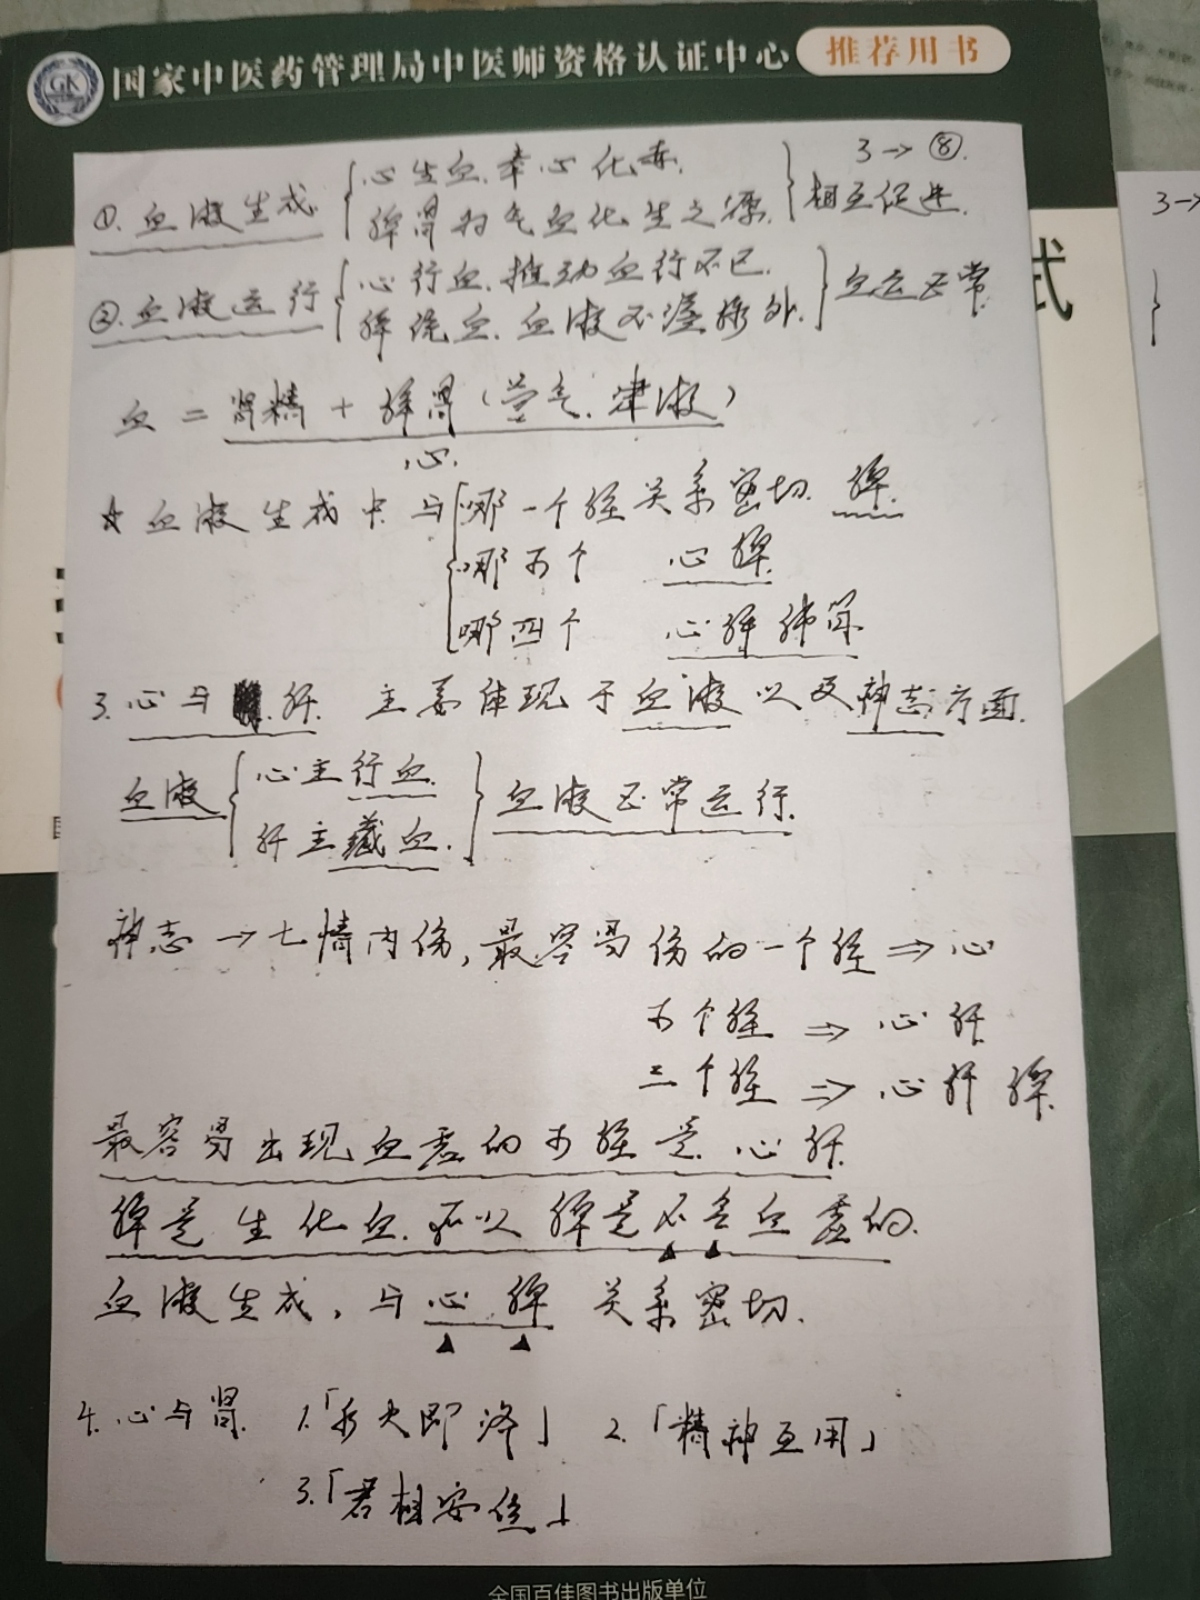 国家中医药管理局中医师资格认证中心 推荐用书
GK
3→⑧.
①.血液生成 { 心生血.奉心化赤.
脾胃为气血化生之源. } 相互促进.
②.血液运行 { 心行血.推动血行不已.
脾统血.血液不溢脉外. } 血运正常
血=肾精+脾胃(营气.津液)
心.
☆血液生成中与 { 哪一个脏关系密切. 脾.
哪两个 心脾.
哪四个 心脾肺肾.
3.心与肝. 主要体现于血液以及神志方面.
血液 { 心主行血.
肝主藏血. } 血液正常运行.
神志→七情内伤,最容易伤的一个脏⇒心
两个脏⇒心肝
三个脏⇒心肝脾.
最容易出现血虚的两脏是.心肝.
脾是生化血.所以脾是不会血虚的.
血液生成,与心脾关系密切.
4.心与肾. 1.「水火即济」 2.「精神互用」
3.「君相安位」
3→
式
全国百佳图书出版单位